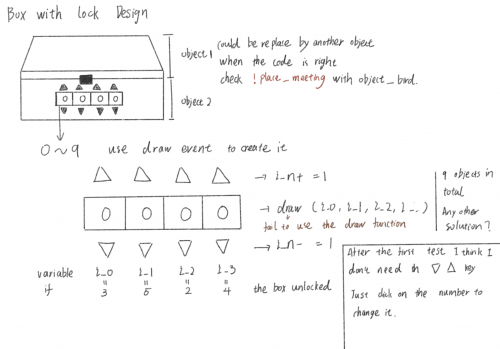 Box with lock Design
object 1
could be replace by another object
when the code is right
check ! place_meeting with object_bird.
object 2
0 0 0 0
0 ~ 9 use draw event to create it
→ i_n+ = 1
0 0 0 0
→ draw (i_0, i_1, i_2, i_..)
fail to use the draw function
→ i_n- = 1
9 objects in
total
Any other
solution?
variable i_0 i_1 i_2 i_3
if = = = = the box unlocked
3 5 2 4
After the first test I think I
don't need th ▽ △ key
Just click on the number to
change it.